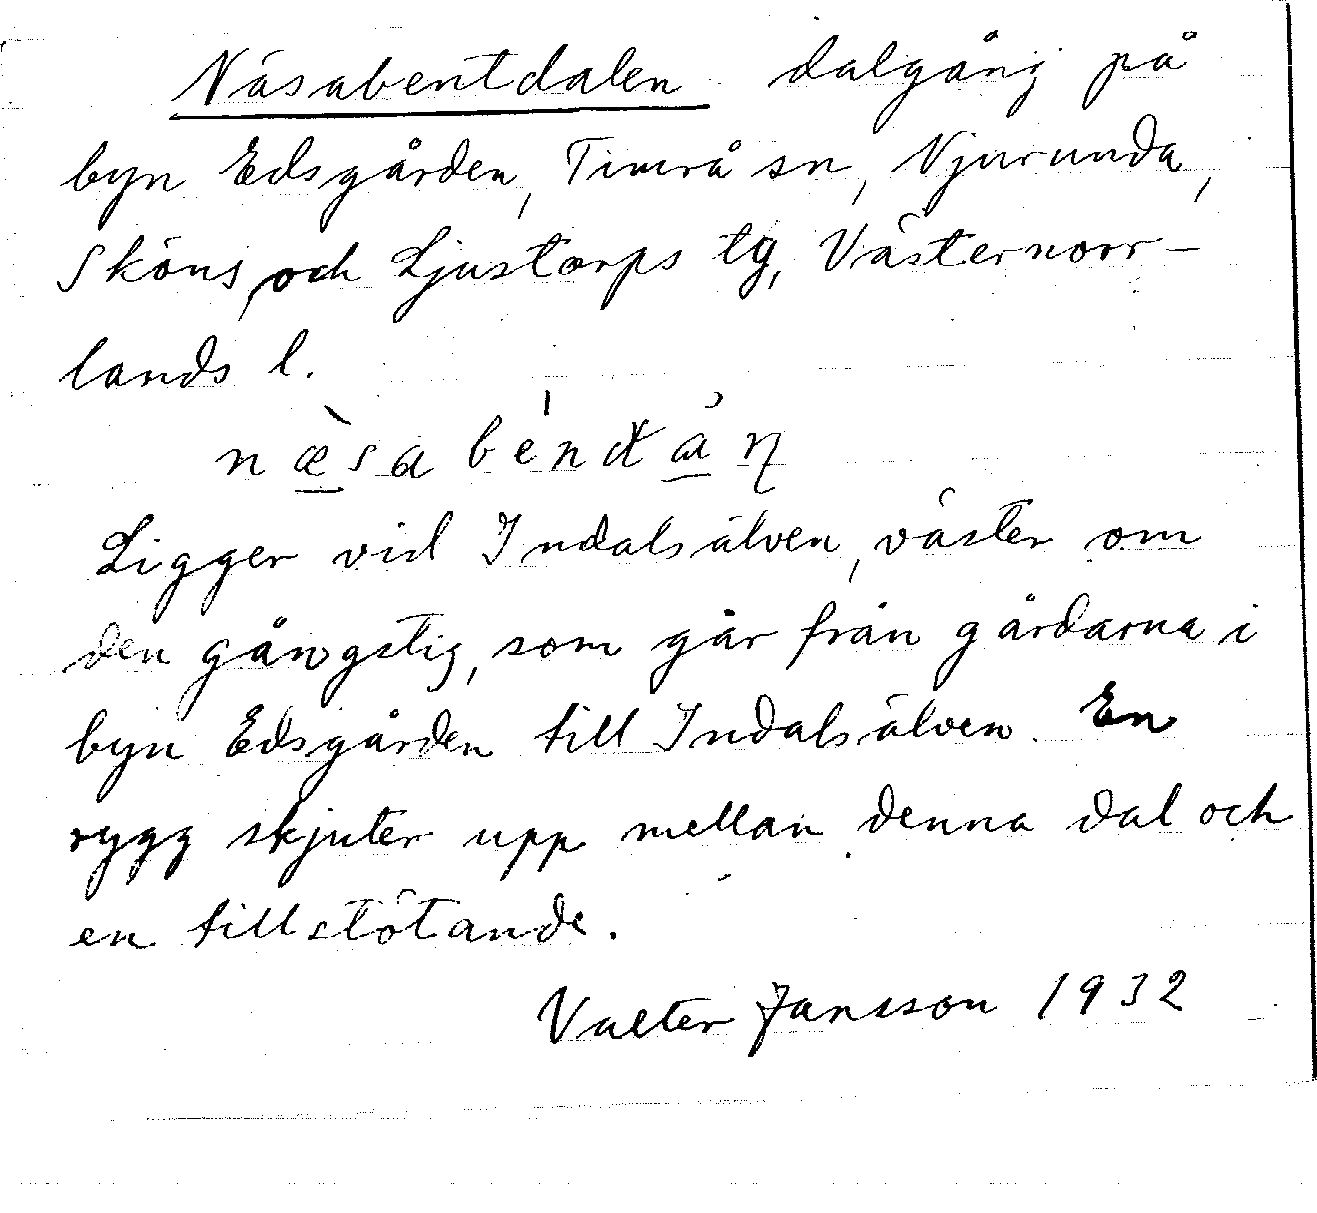 Näsabentdalen dalgång på
byn Edsgården, Timrå sn, Njurunda,
Sköns, och Ljustorps tg, Västernorr-
lands l.
Ligger vid Indalsälven, väster om
den gångstig, som går från gårdarna i
byn Edsgården till Indalsälven. En
rygg skjuter upp mellan denna dal och
en tillstötande.
Valter Jansson 1932